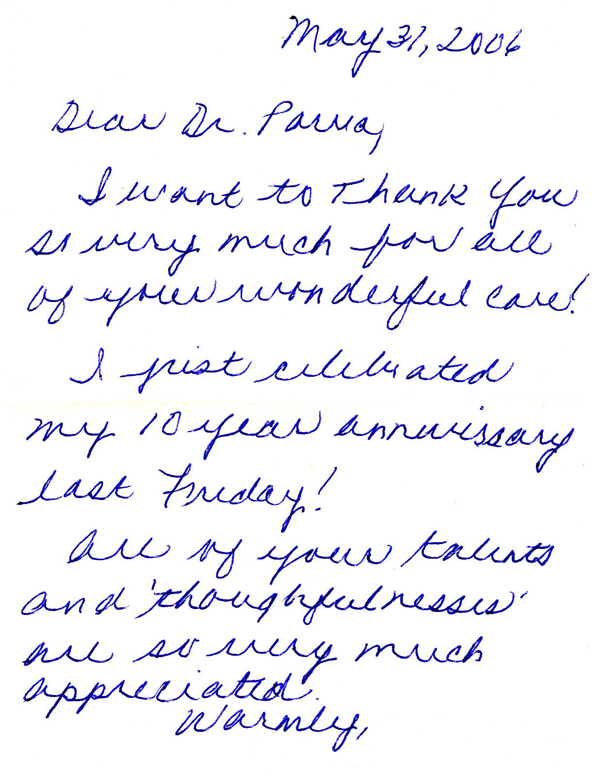 May 31, 2006
Dear Dr. Parra,
I want to Thank You
so very much for all
of your wonderful care!
I just celebrated
my 10 year annivissary
last Friday!
All of your talents
and 'thoughtfulnesses'
are so very much
appreciated.
Warmly,